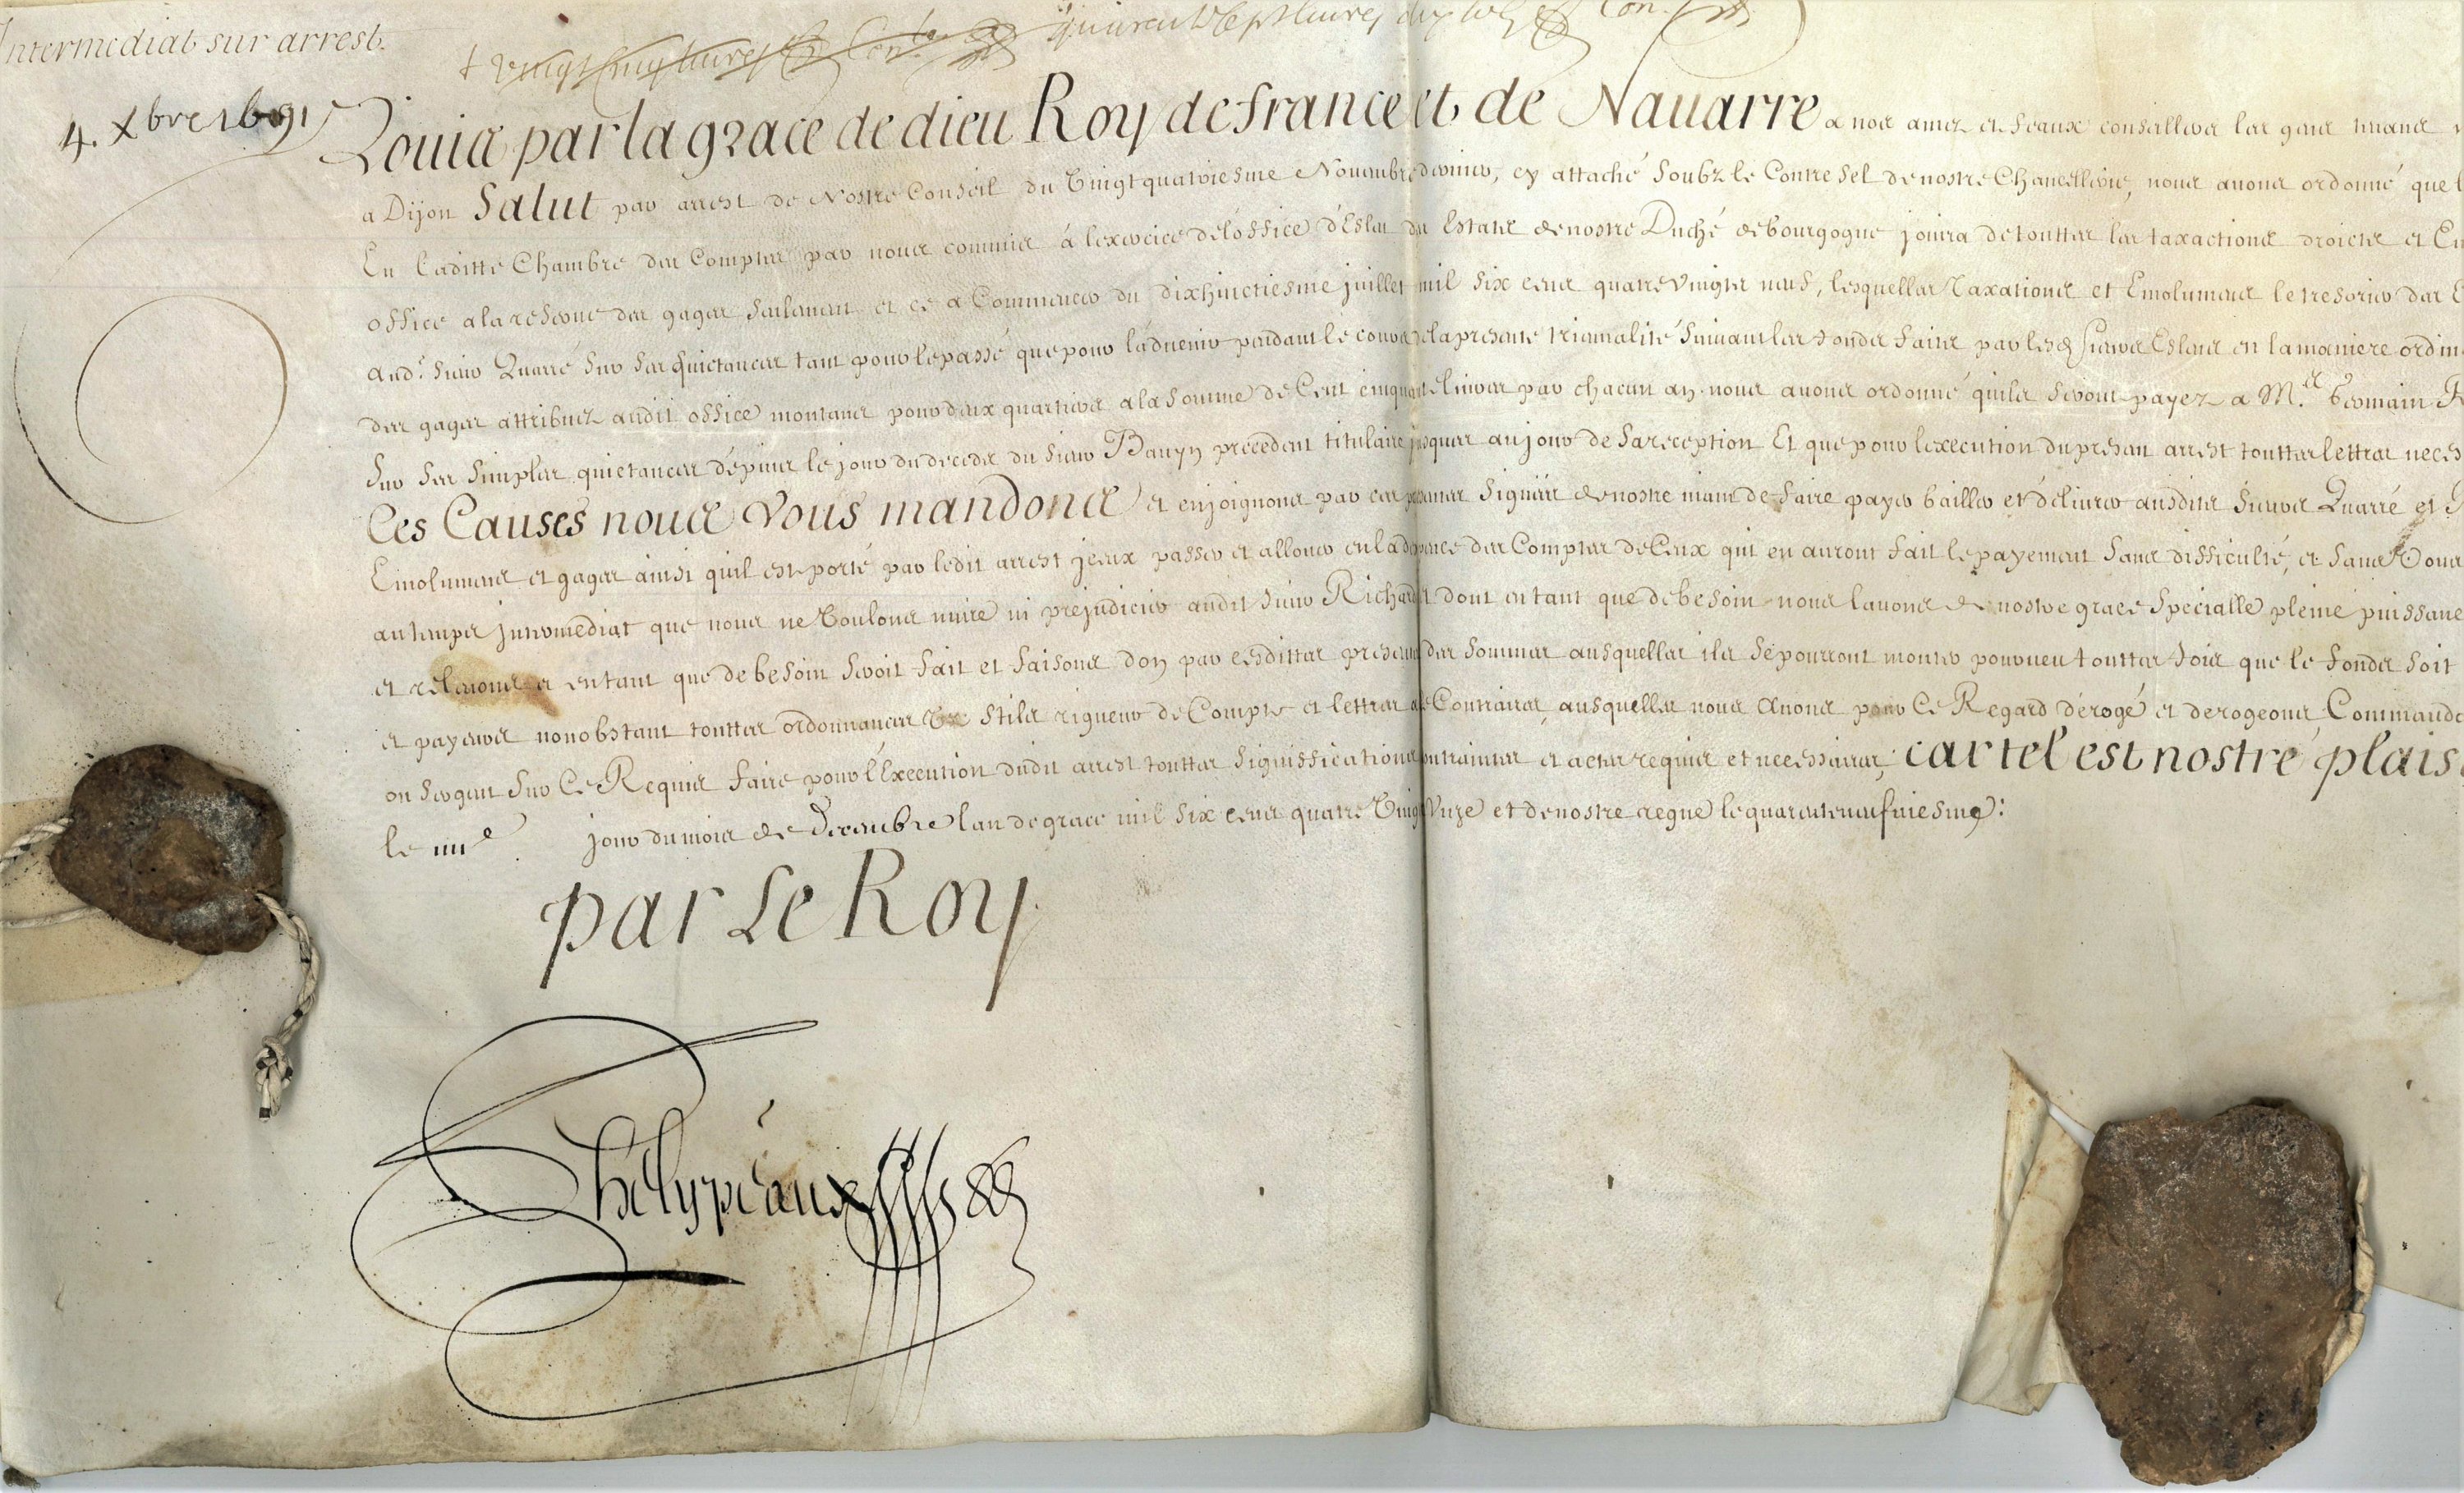 Intermediat sur arrest.
quarente sept livres dix sols
4. Xbre 1691
Louis par la grace de dieu Roy de france et de Nauarre a nos amez et feaux conseillers les gens tenans
a Dijon Salut par arrest de Nostre Conseil du Vingt quatriesme Nouembre dernier, cy attaché soubz le Contresel de nostre Chancellerie, nous auons ordonné que
En laditte Chambre des Comptes par nous commis à lexercice de loffice d'Eslu des Estats de nostre Duché de bourgogne jouira de touttes les taxactions droicts et
office a la reserue des gages seulement et ce a Commencer du dixhuictiesme juillet mil six cens quatre vingts neuf, lesquelles Taxations et Emolumens le tresorier des
aud.t sieur Quarré sur ses quictances tant pour le passé que pour l'aduenir pendant le cours de la presente triennalité suiuant les fonds faits par lesd sieurs Eslus en la maniere ordin
des gages attribuez audit office montans pour deux quartiers a la somme de Cent cinquante liures par chacun an nous auons ordonné quils seront payez a M.re Germain
sur ses simples quictances depuis le jour du deceds du sieur Bauyn precedent titulaire jusques au jour de sa reception Et que pour lexecution du presen arrest touttes lettres neces
Ces Causes nous Vous mandons et enjoignons par ces presentes signées de nostre main de faire payer bailler et deliurer ausdits sieurs Quarré et
Emolumens et gages ainsi quil est porté par ledit arrest jceux passer et allouer en la depence des Comptes de Ceux qui en auront fait le payement sans difficulté, et sans
au temps jntermediat que nous ne Voulons nuire ni prejudicier audit sieur Richard et dont en tant que de besoin nous lauons de nostre grace specialle pleine puissance
et releuons et en tant que de besoin seroit fait et faisons don par cesdittes presentes des sommes ausquelles ils se pourront monter pourueu touttes fois que le fonds soit
et payeurs nonobstant touttes ordonnances stile rigueur de Compte et lettres a ce Contraires, ausquelles nous Auons pour Ce Regard dérogé et derogeons Commande
ou sergent sur Ce Requis faire pour l'Execution dudit arrest touttes significations contraintes et actes requis et necessaires; car tel est nostre plais
le iiii.e jour du mois de Decembre lan de grace mil six cens quatre Vingt Vnze et de nostre regne le quarenteneufuiesme:
par Le Roy
Phelypeaux